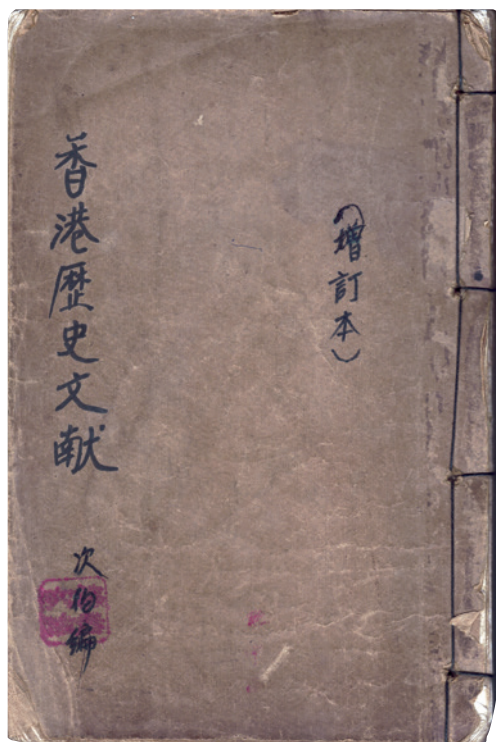 （增訂本）
香港歷史文献
次伯編